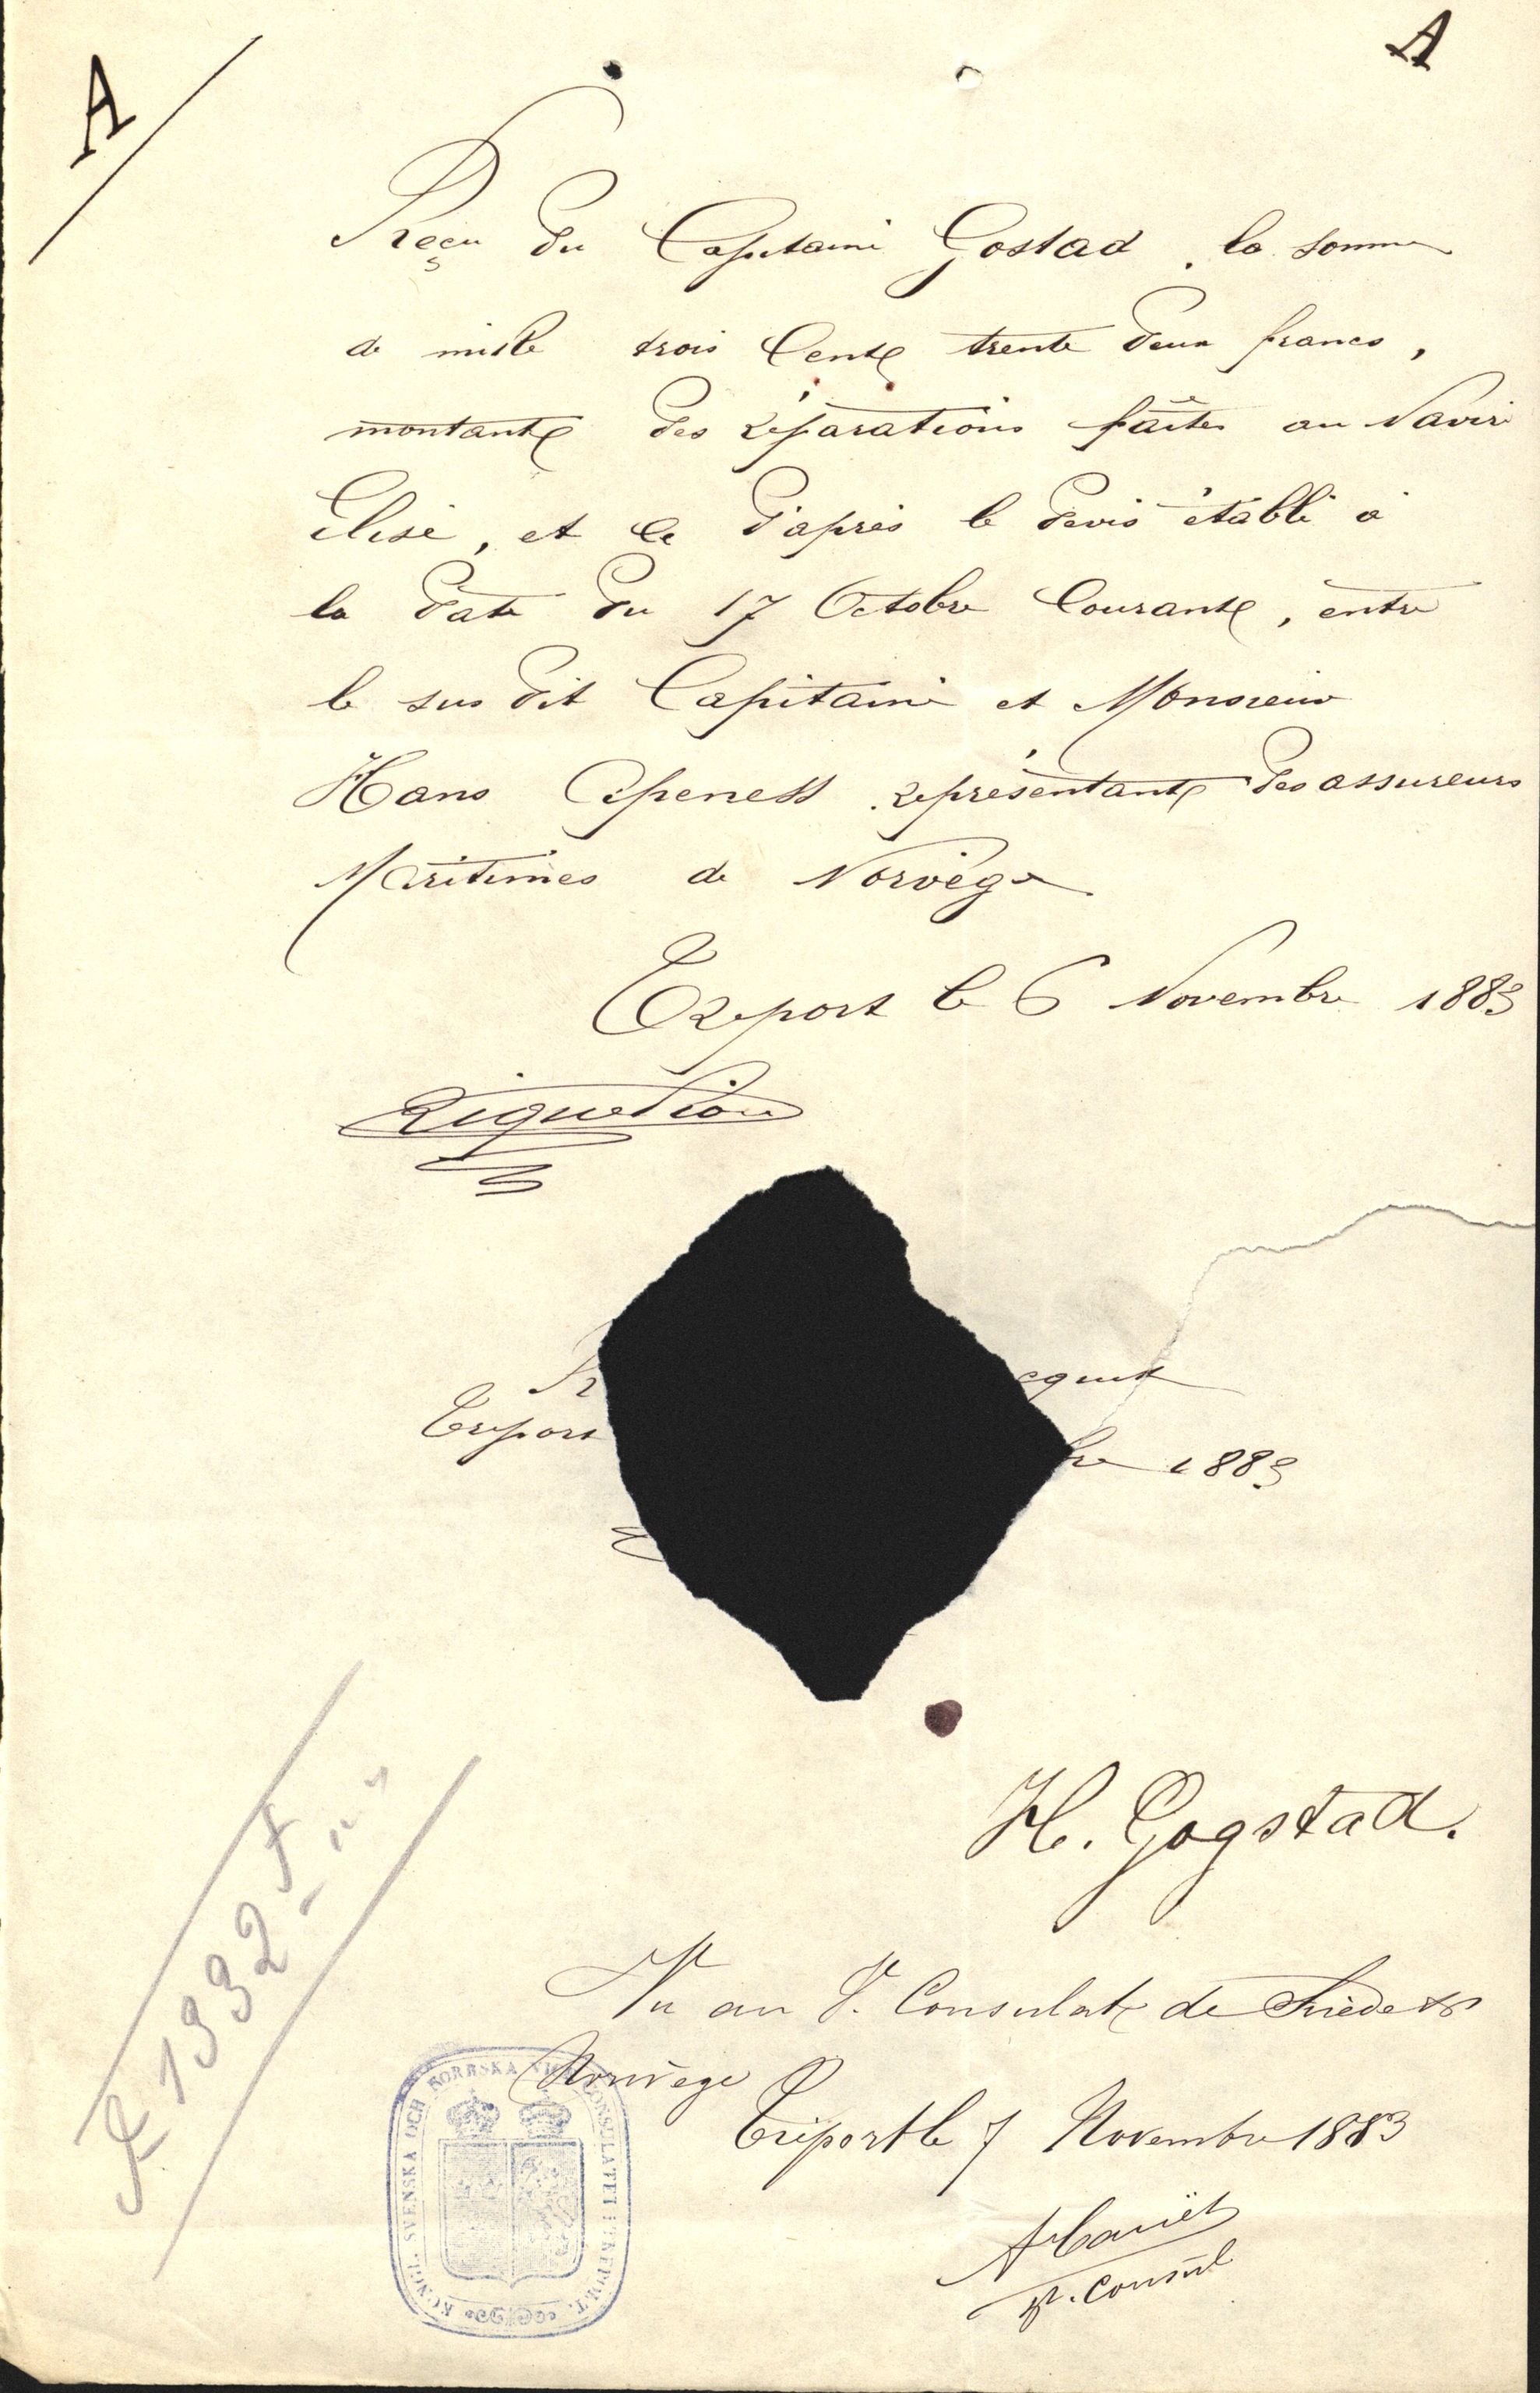 A
A
Reçu du Capitaine Gostad, la somme
de mille trois Cents trente deux francs,
montant des réparations faites au Navire
Elise, et ce d'après le devis établi à
la date du 17 Octobre Courant, entre
le sus dit Capitaine et Monsieur
Hans représentant des assureurs
Maritimes de Norvège
Treport le 6 Novembre 1883
R cquit
Treport bre 1883
H. Gogstad.
Vu au V. Consulat de Suède &
Norvège
Tréport le 7 Novembre 1883
V. Consul
1332 F
KONGL. SVENSKA OCH NORRSKA VICE CONSULATET I TREPORT.